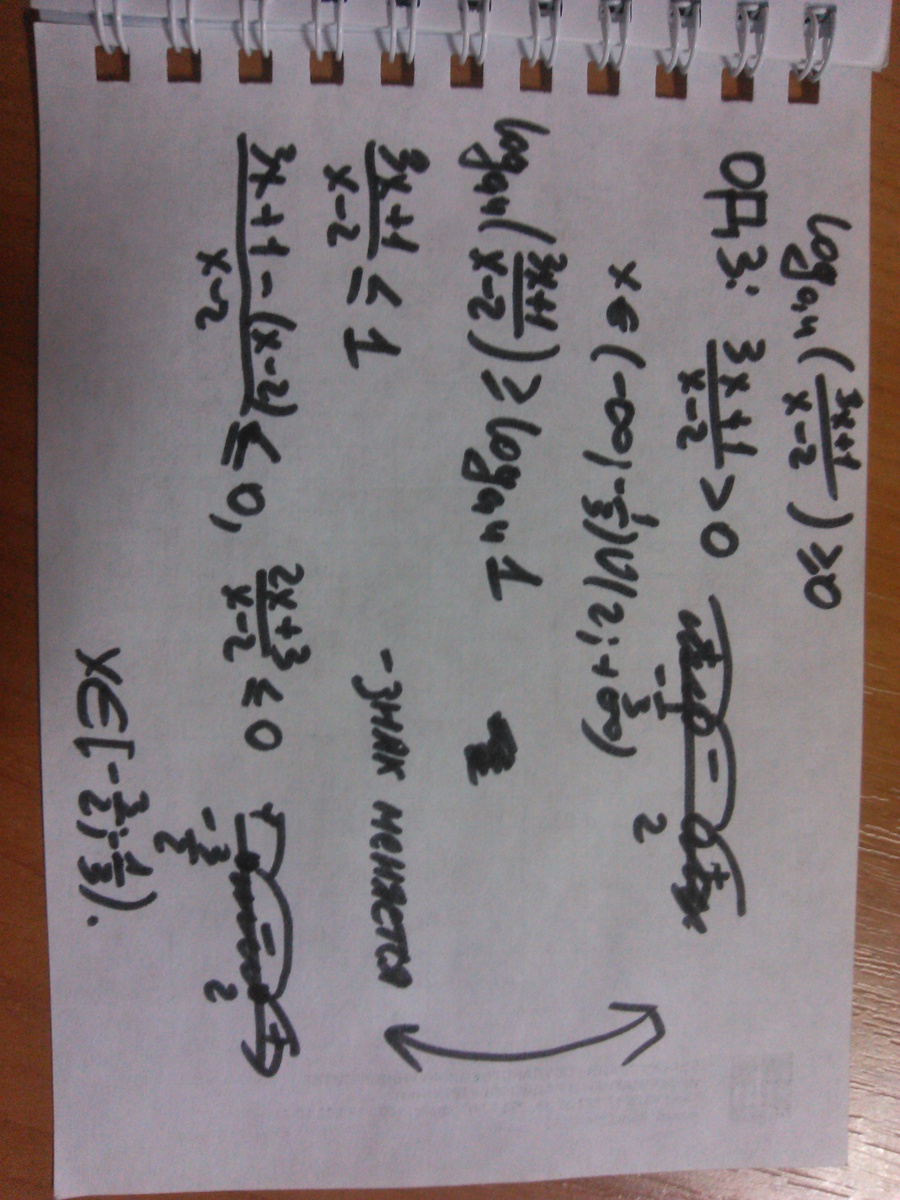 log₀,₄ ((3x+1)/(x-2)) ≥ 0
ОДЗ: (3x+1)/(x-2) > 0 + - + -1/3 2
x ∈ (-∞; -1/3) U (2; +∞)
log₀,₄ ((3x+1)/(x-2)) ≥ log₀,₄ 1
(3x+1)/(x-2) ≤ 1 - знак меняется
(3x+1-(x-2))/(x-2) ≤ 0, (2x+3)/(x-2) ≤ 0 + - + -3/2 2
x ∈ [-3/2; 1/3).